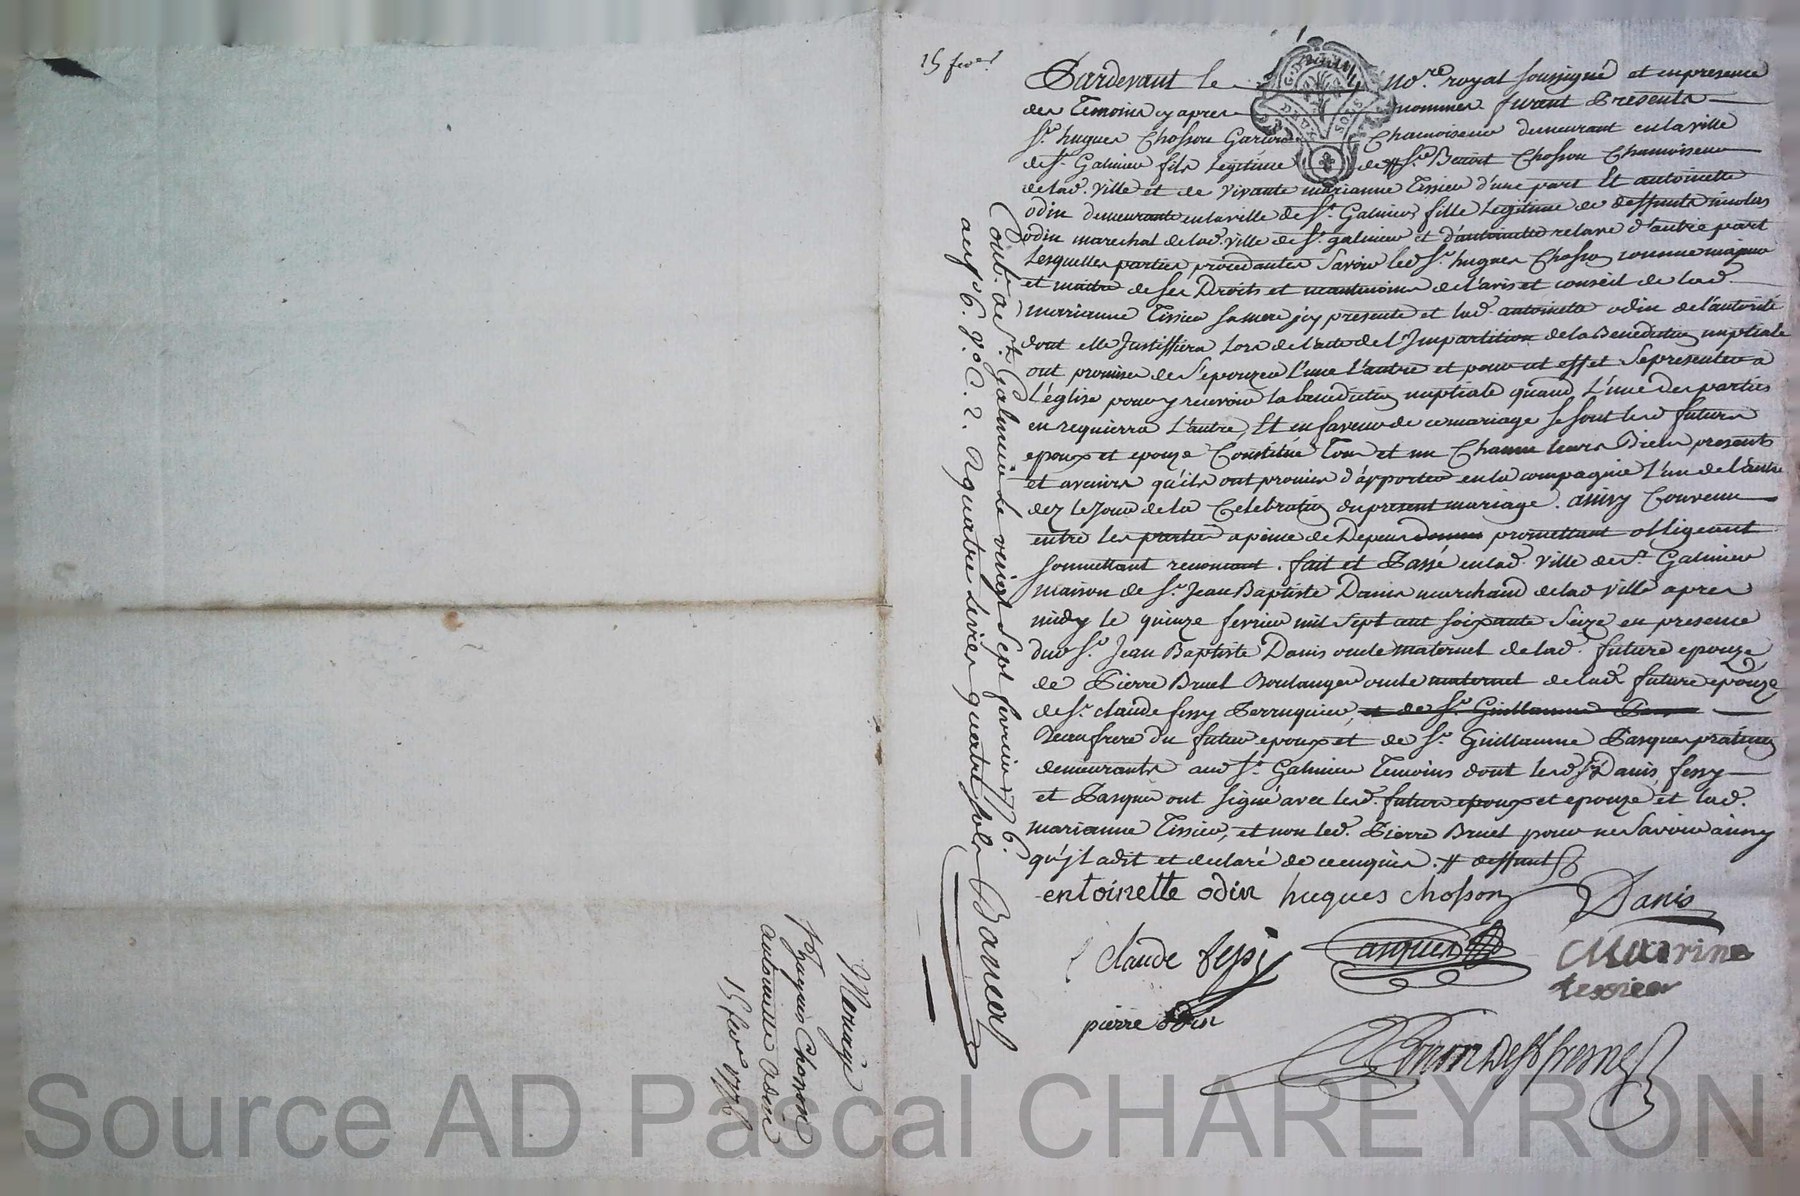 15 fevr
Pardevant le no.re royal soussigné et en presence
des Temoins cy apres nommés furent Presents
Sr. hugues Chosson Garçon Chamoiseur demeurant en la ville
de St. Galmier fils Legitime de # Sr. Benoit Chosson Chamoiseur
de lad. ville et de vivante marianne Tissier d'une part Et antoinette
odin demeurante en la ville de St. Galmier fille Legitime de deffunts nicolas
odin marechal de lad. ville de St. galmier et d'antoinette relave d'autre part
Lesquelles parties procedantes Savoir led. Sr. hugues Chosson comme majeur
et maitre de ses Droits et neantmoins de l'avis et conseil de lad.
marianne Tissier sa mere jcy presente et lad. antoinette odin de l'autorité
dont elle Justiffiera Lors de l'acte de l'Impartition de la Benediction nuptiale
ont promis de S'epouzer l'une L'autre et pour cet effet Se presenter a
L'église pour y recevoir la benediction nuptiale quand L'une des parties
en requierra L'autre, Et en faveur de ce mariage se sont lesd. futurs
epoux et epouze Constitué Tous et un Chacun leurs Biens presents
et avenirs qu'ils ont promis d'apporter en la compagnie L'un de l'autre
dez le Jour de la Celebration du present mariage. ainsy Convenu
entre les parties a peine de Depens promettant obligeant
soumettant renonçant. fait et Passé en lad. ville de St. Galmier
maison de Sr. Jean Baptiste Danis marchand de lad. ville apres
midy le quinze fevrier mil sept cent soixante Seize en presence
dud. Sr. Jean Baptiste Danis oncle maternel de lad. future epouze,
de Pierre Bruel Boulanger oncle maternel de lad. future epouze
de Sr. claude fessy Perruquier, et de Sr. Guillaume Pas
Beaufrere du futur epoux et de Sr. Guillaume Pasquier praticien
demeurants aud. St. Galmier Temoins dont lesd. Srs. Danis, fessy
et Pasquier ont signé avec lesd. futurs epoux et epouze et lad.
marianne Tissier, et non led. Pierre Bruel pour ne Savoir ainsy
qu'jl a dit et declaré de ce enquis. # deffunt
entoinette odin hugues chosson Danis
Claude fessy Pasquier Marine
tessier
pierre odin
Controllé a St. Galmier Le vingt Sept fevrier 1776.
art. 6. vo. C. 2. R quatre Livres quatre sols Bancal
Mariage
hugues Chosson
antoinette Odin
15 fevr 1776
Source AD Pascal CHAREYRON